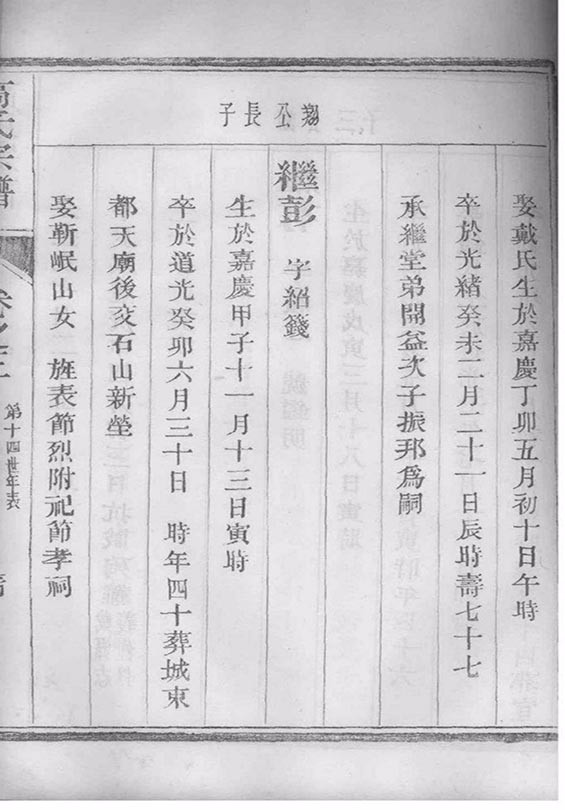 翙公長子
娶戴氏生於嘉慶丁卯五月初十日午時
卒於光緒癸未二月二十一日辰時壽七十七
承繼堂弟開益次子振邦爲嗣
繼彭 字紹籛
生於嘉慶甲子十一月十三日寅時
卒於道光癸卯六月三十日 時年四十葬城東
都天廟後交石山新塋
娶靳岷山女 旌表節烈附祀節孝祠
氏宗譜
第十四世年表